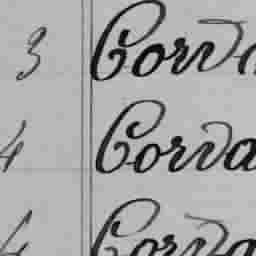 3 Corda
4 Corda
4 Corda